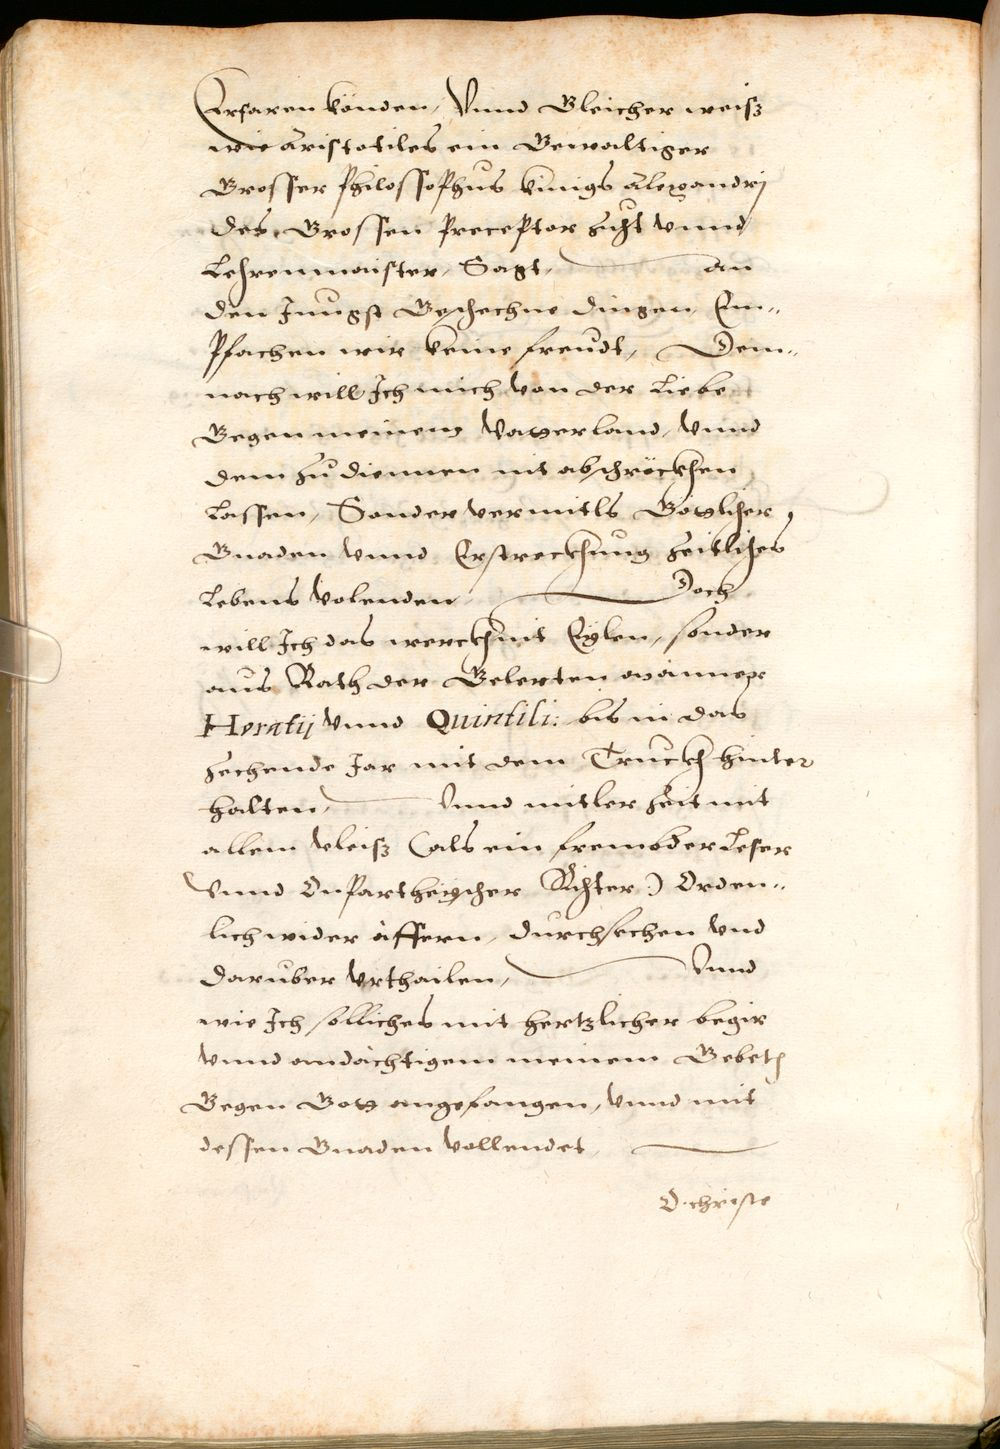 Erfaren könden, Vnnd Gleicher weisz
wie Aristotiles ein Gewaltiger
Grosser Philossophus künigs Alexandrj
des Grossen Preceptor Zucht vnnd
Lehrenmaister, Sagt, an
den Jüngst Geschechne dingen Em„
Pfachen wir keine freudt, Dem„
nach will Ich mich von der Liebe
Gegen meinem Vatterland, vnnd
dem zu diennen nit abschröckhen
Lassen, Sonder vermitls Götlicher
Gnaden vnnd Erstreckhung Zeitliches
Lebens volenden, Doch
will Ich das werckh nit Eylen, sonder
aus Rath der Gelerten männer
Horatij vnnd Quintili: bis in das
Zechende Jar mit dem Truckh hinter
halten, Vnnd mitler Zeit mit
allem vleisz (als ein frembder Leser
Vnnd Onpartheyscher Richter:) Orden„
lich wider äffern, durchsechen vnd
daruber vrthailen, Vnnd
wie Ich solliches mit hertzlicher begir
vnnd andächtigem meinem Gebeth
Gegen Gott angefangen, vnnd mit
dessen Gnaden vollendet,
O. christe